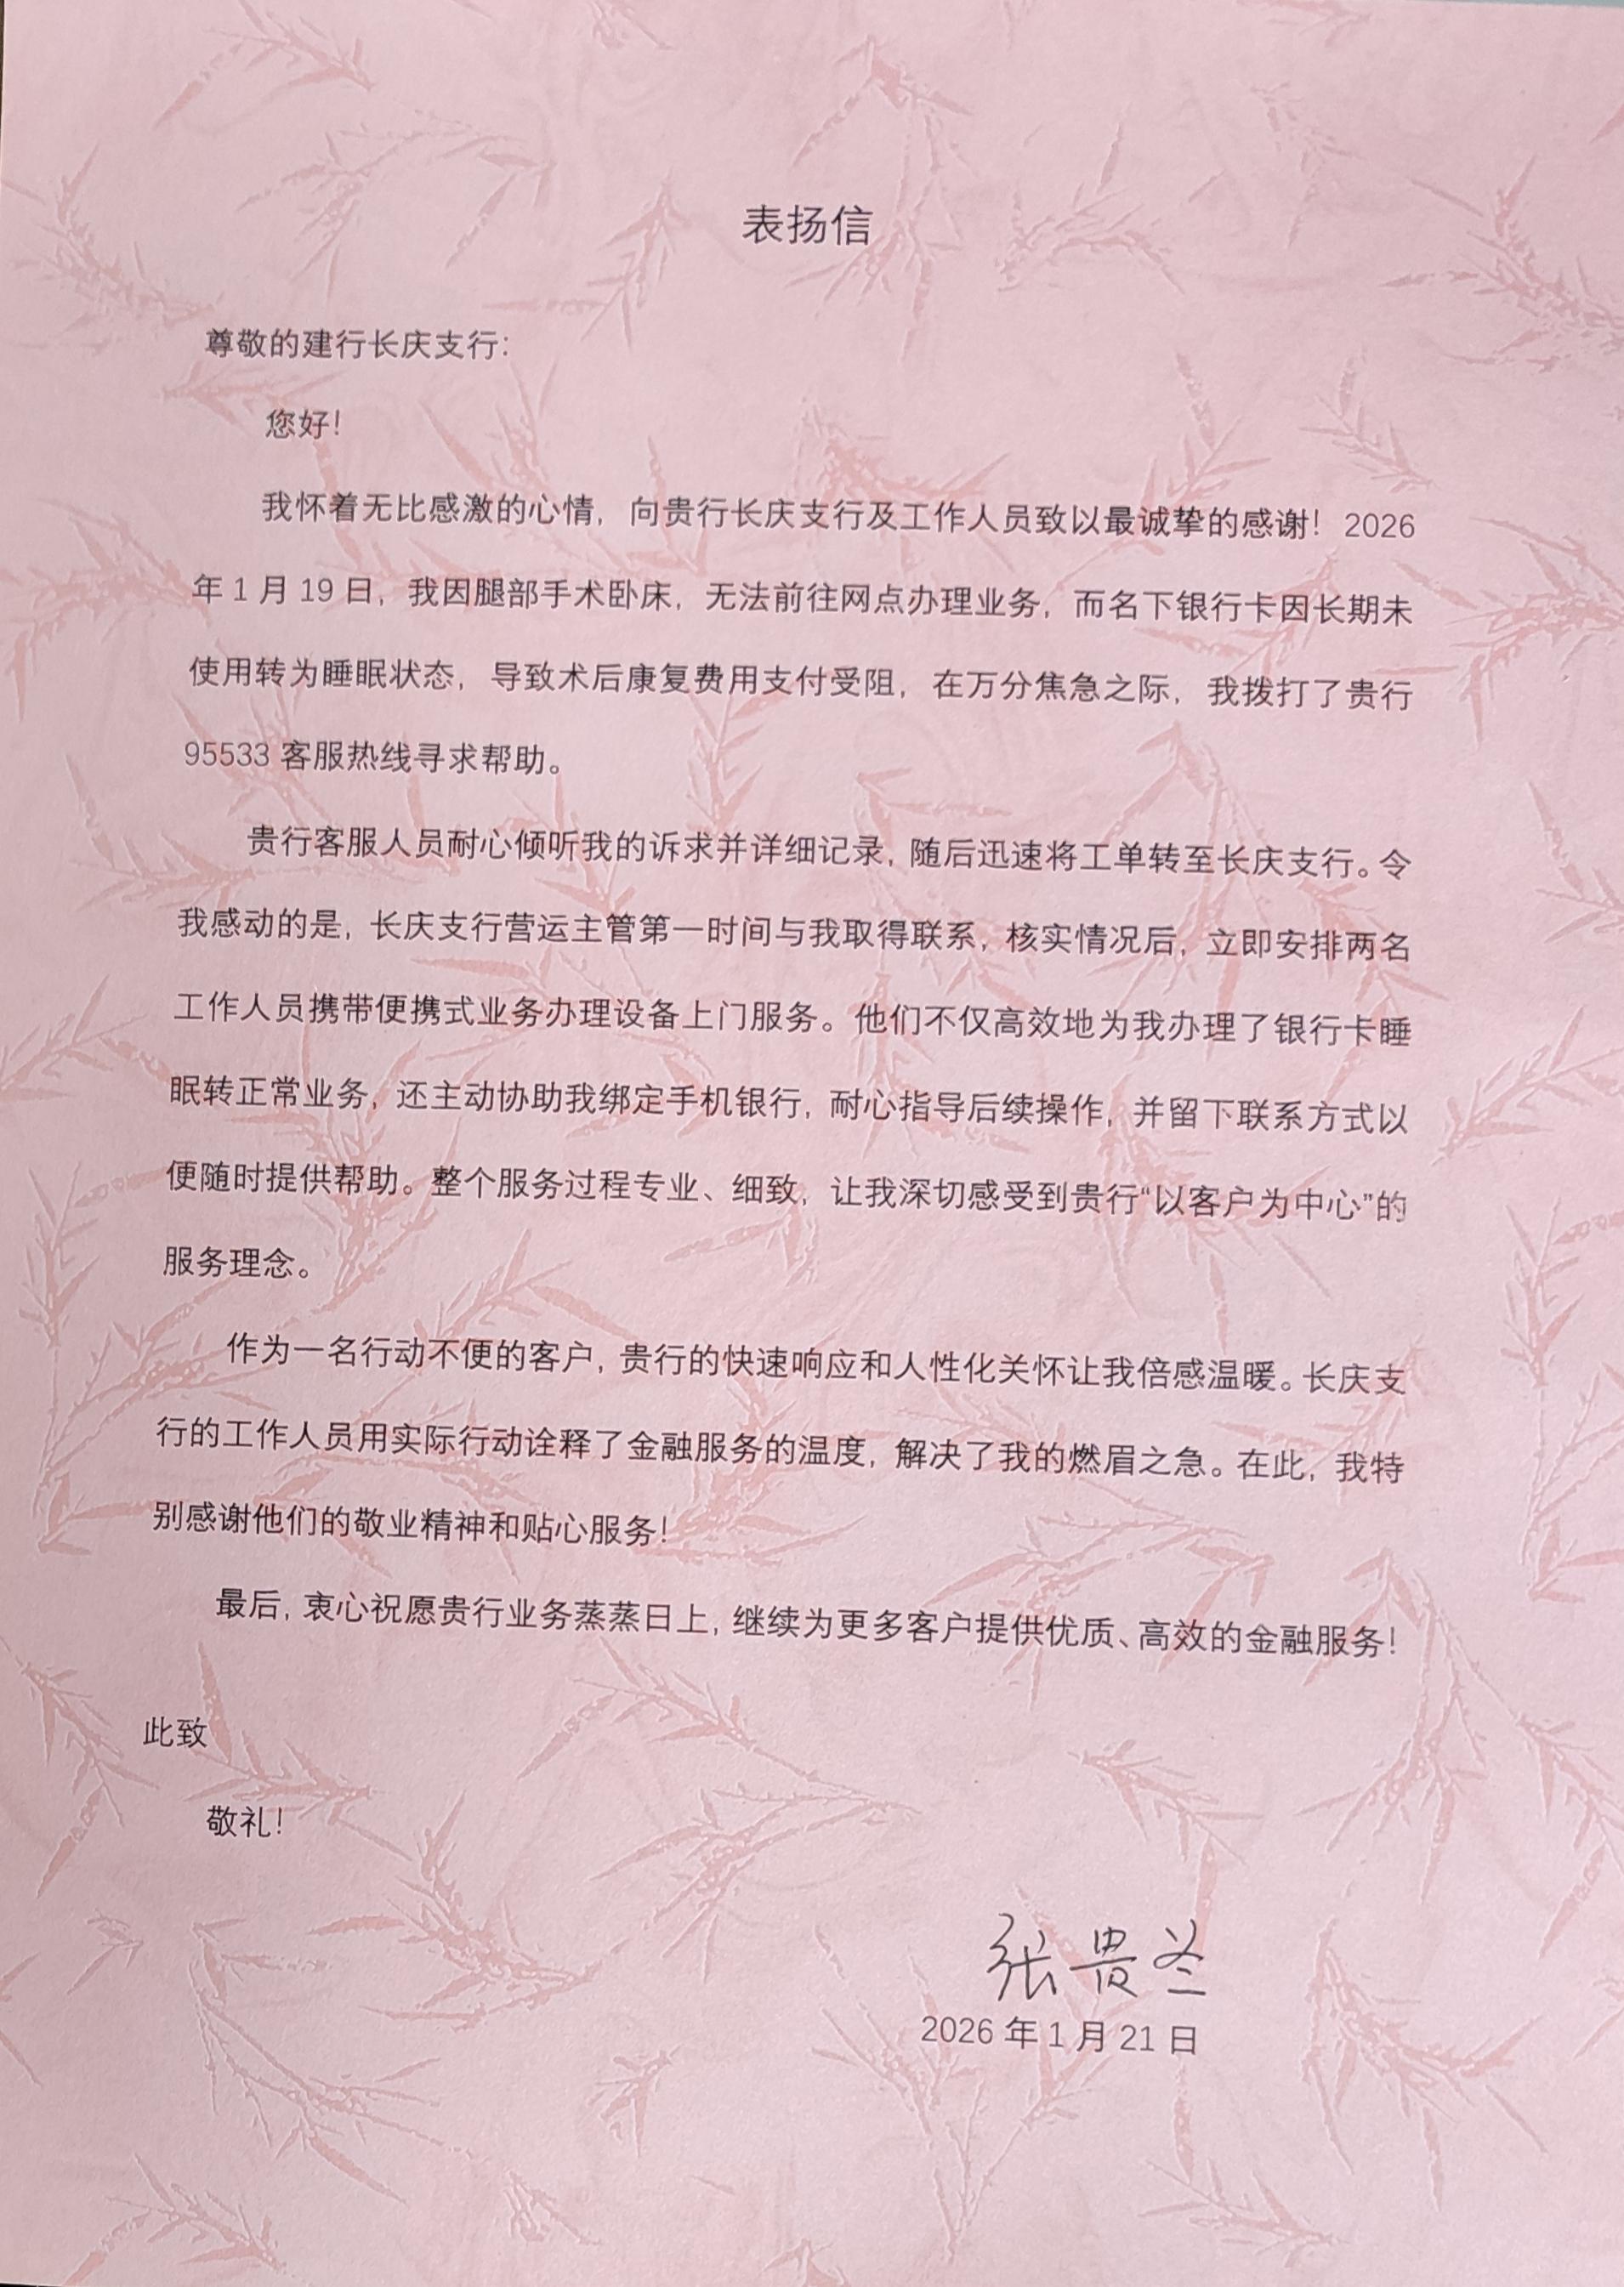 表扬信
尊敬的建行长庆支行：
您好！
我怀着无比感激的心情，向贵行长庆支行及工作人员致以最诚挚的感谢！2026
年1月19日，我因腿部手术卧床，无法前往网点办理业务，而名下银行卡因长期未
使用转为睡眠状态，导致术后康复费用支付受阻，在万分焦急之际，我拨打了贵行
95533客服热线寻求帮助。
贵行客服人员耐心倾听我的诉求并详细记录，随后迅速将工单转至长庆支行。令
我感动的是，长庆支行营运主管第一时间与我取得联系，核实情况后，立即安排两名
工作人员携带便携式业务办理设备上门服务。他们不仅高效地为我办理了银行卡睡
眠转正常业务，还主动协助我绑定手机银行，耐心指导后续操作，并留下联系方式以
便随时提供帮助。整个服务过程专业、细致，让我深切感受到贵行“以客户为中心”的
服务理念。
作为一名行动不便的客户，贵行的快速响应和人性化关怀让我倍感温暖。长庆支
行的工作人员用实际行动诠释了金融服务的温度，解决了我的燃眉之急。在此，我特
别感谢他们的敬业精神和贴心服务！
最后，衷心祝愿贵行业务蒸蒸日上，继续为更多客户提供优质、高效的金融服务！
此致
敬礼！
张贵兰
2026年1月21日